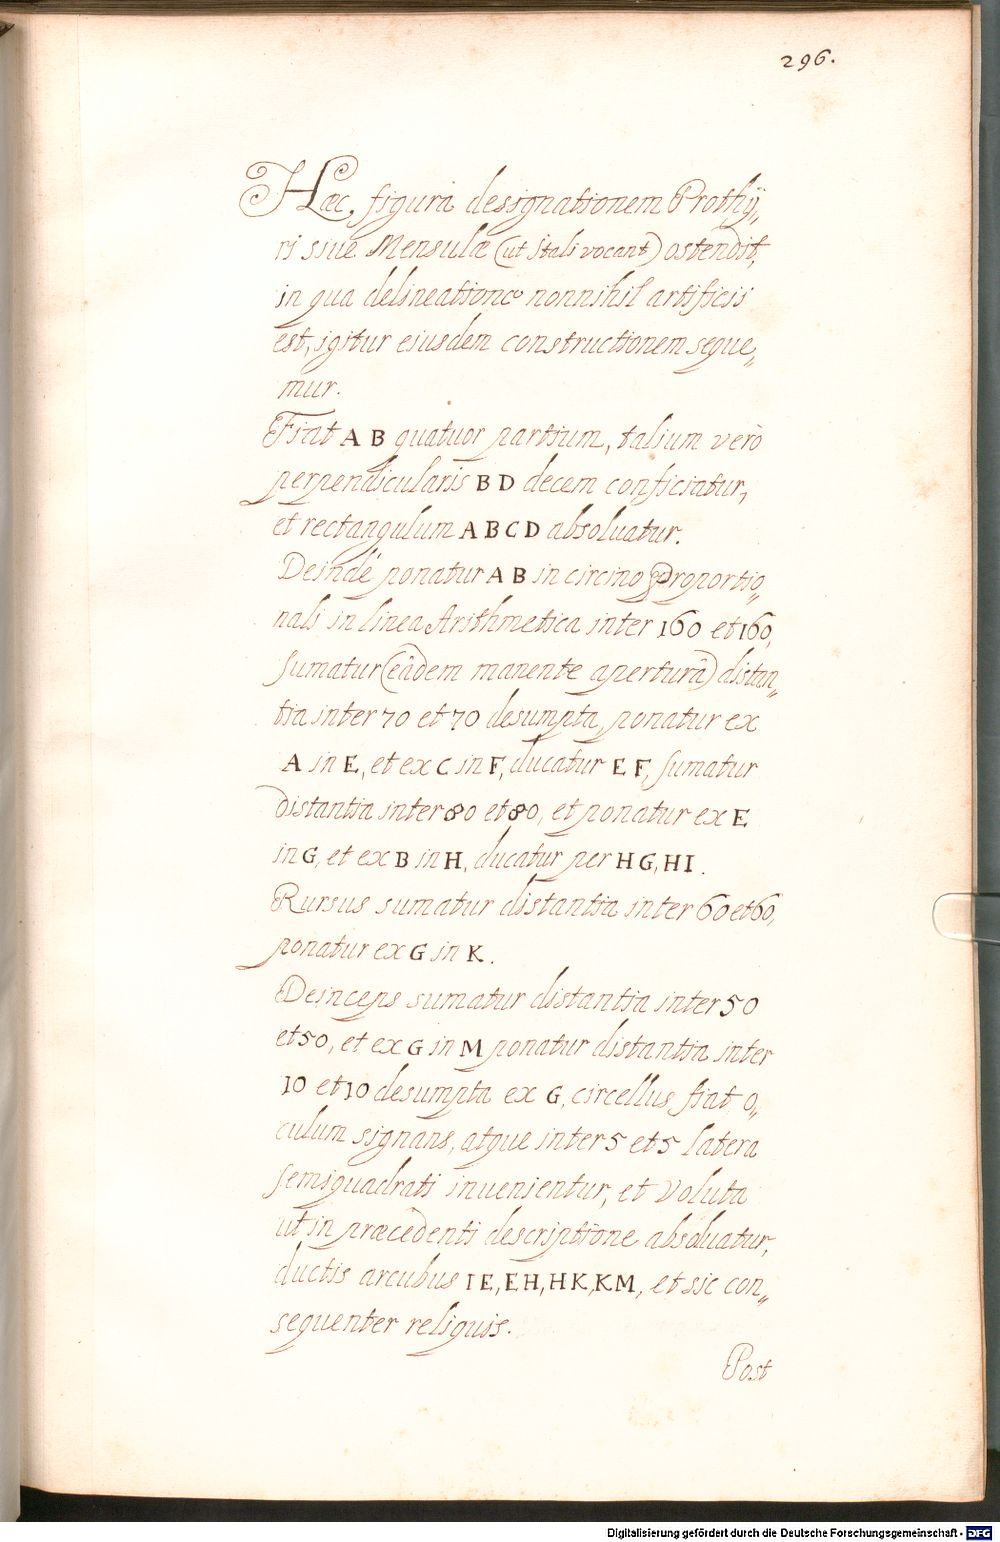 296.
Hæc, figura designationem Prothÿ„
ri siue Mensulæ (ut Itali vocant) ostendit,
in qua delineatione nonnihil artificii
est, igitur eiusdem constructionem seque„
mur.
Fiat A B quatuor partium, talium verò
perpendicularis B D decem conficiatur,
et rectangulum A B C D absoluatur.
Deindé ponatur A B in circino Proportio„
nali in linea Arithmetica inter 160 et 160,
sumatur (eâdem manente aperturâ) distan„
tia inter 70 et 70 desumpta, ponatur ex
A in E, et ex C in F, ducatur E F, sumatur
distantia inter 80 et 80, et ponatur ex E
in G, et ex B in H, ducatur per H G, H I.
Rursus sumatur distantia inter 60 et 60,
ponatur ex G in K.
Deinceps sumatur distantia inter 50
et 50, et ex G in M ponatur distantia inter
10 et 10 desumpta ex G, circellus fiat o„
culum signans, atque inter 5 et 5 latera
semiquadrati inuenientur, et Voluta
ut in præcedenti descriptione absoluatur,
ductis arcubus I E, E H, H K, K M, et sic con„
sequenter reliquis.
Post
Digitalisierung gefördert durch die Deutsche Forschungsgemeinschaft - DFG